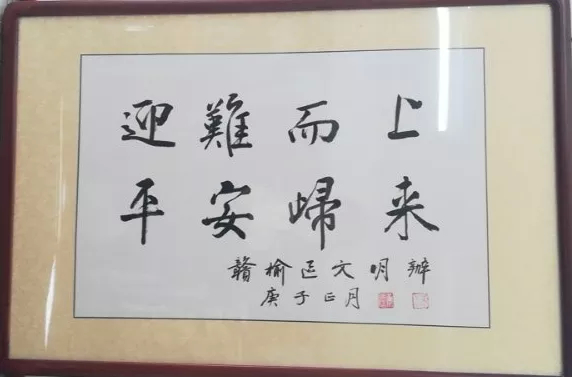 迎難而上
平安歸来
贛榆区文明辦
庚子正月